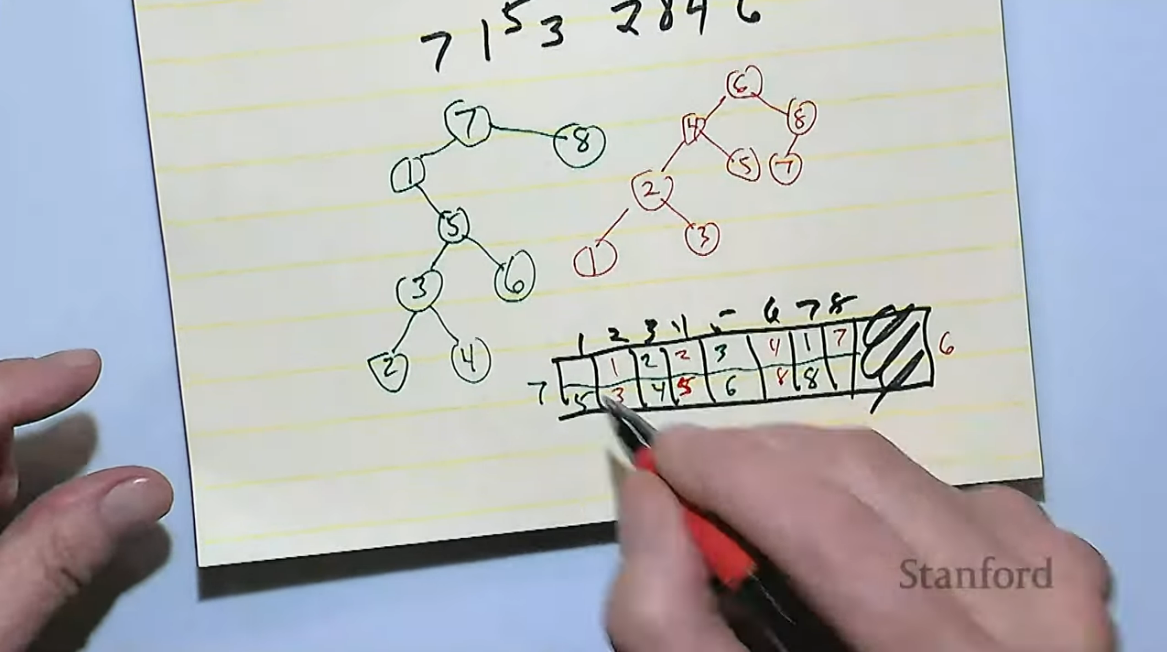 7 1 5 3 2 8 4 6
7 8
1
5
3 6
2 4
6
4 8
5 7
2
1 3
1 2 3 4 5 6 7 8
1 2 2 3 4 1 7 6
7 5 3 4 5 6 8 8
Stanford